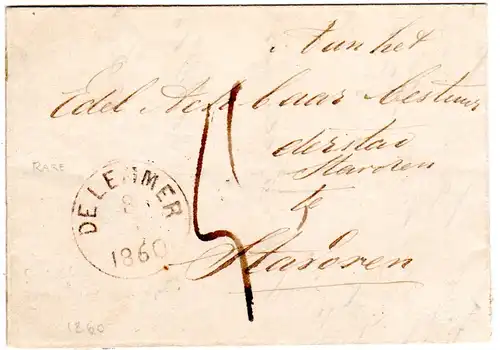 Aan het
Edel Achtbaar bestuur
der stad
Stavoren
te
Stavoren
RARE
DE LEMMER
8
1860
5
1860